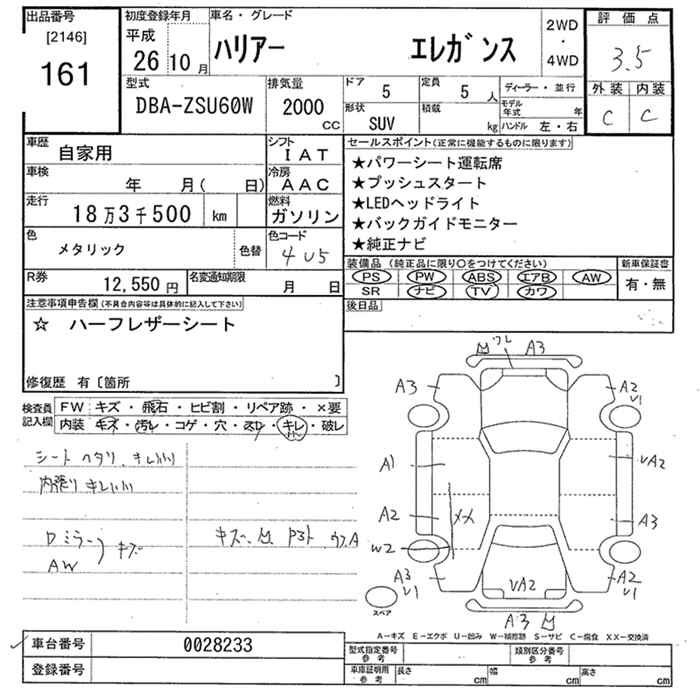 出品番号
[2146]
161
初度登録年月
平成
26 10 月
車名・グレード
ハリアー エレガンス
2WD
・
4WD
評価点
3.5
外装 内装
C C
型式
DBA-ZSU60W
排気量
2000
CC
ドア
5
定員
5 人
形状
SUV
積載
kg
ディーラー・並行
モデル
年式 年
ハンドル 左・右
車歴
自家用
シフト
IAT
車検
年 月( 日)
冷房
AAC
走行
18万3千500 km
燃料
ガソリン
色
メタリック
色替
色コード
4U5
R券
12,550円
名変通知期限
月 日
セールスポイント(正常に機能するものに限ります)
★パワーシート運転席
★プッシュスタート
★LEDヘッドライト
★バックガイドモニター
★純正ナビ
装備品 (純正品に限り○をつけてください)
新車保証書
PS PW ABS エアB AW
SR ナビ TV カワ
有・無
後日品
注意事項申告欄(不具合内容等は具体的に記入して下さい)
☆ ハーフレザーシート
修復歴 有〔箇所 〕
検査員
記入欄
FW キズ・飛石・ヒビ割・リペア跡・×要
内装 キズ・汚レ・コゲ・穴・スレ・キレ・破レ
シート ヘタリ、キレ
内張り キレ
Dミラー
AW
キズ
キズ、凹
ワレ A3
A3
A2
U1
A1
UA2
A2
メメ
A3
W2
A3
U1
UA2
A2
U1
A3 凹
スペア
A－キズ E－エクボ U－凹み W－補修跡 S－サビ C－腐食 XX－交換済
車台番号
0028233
登録番号
型式指定番号
参考
類別区分番号
参考
車庫証明用
参考
長さ cm
幅 cm
高さ cm